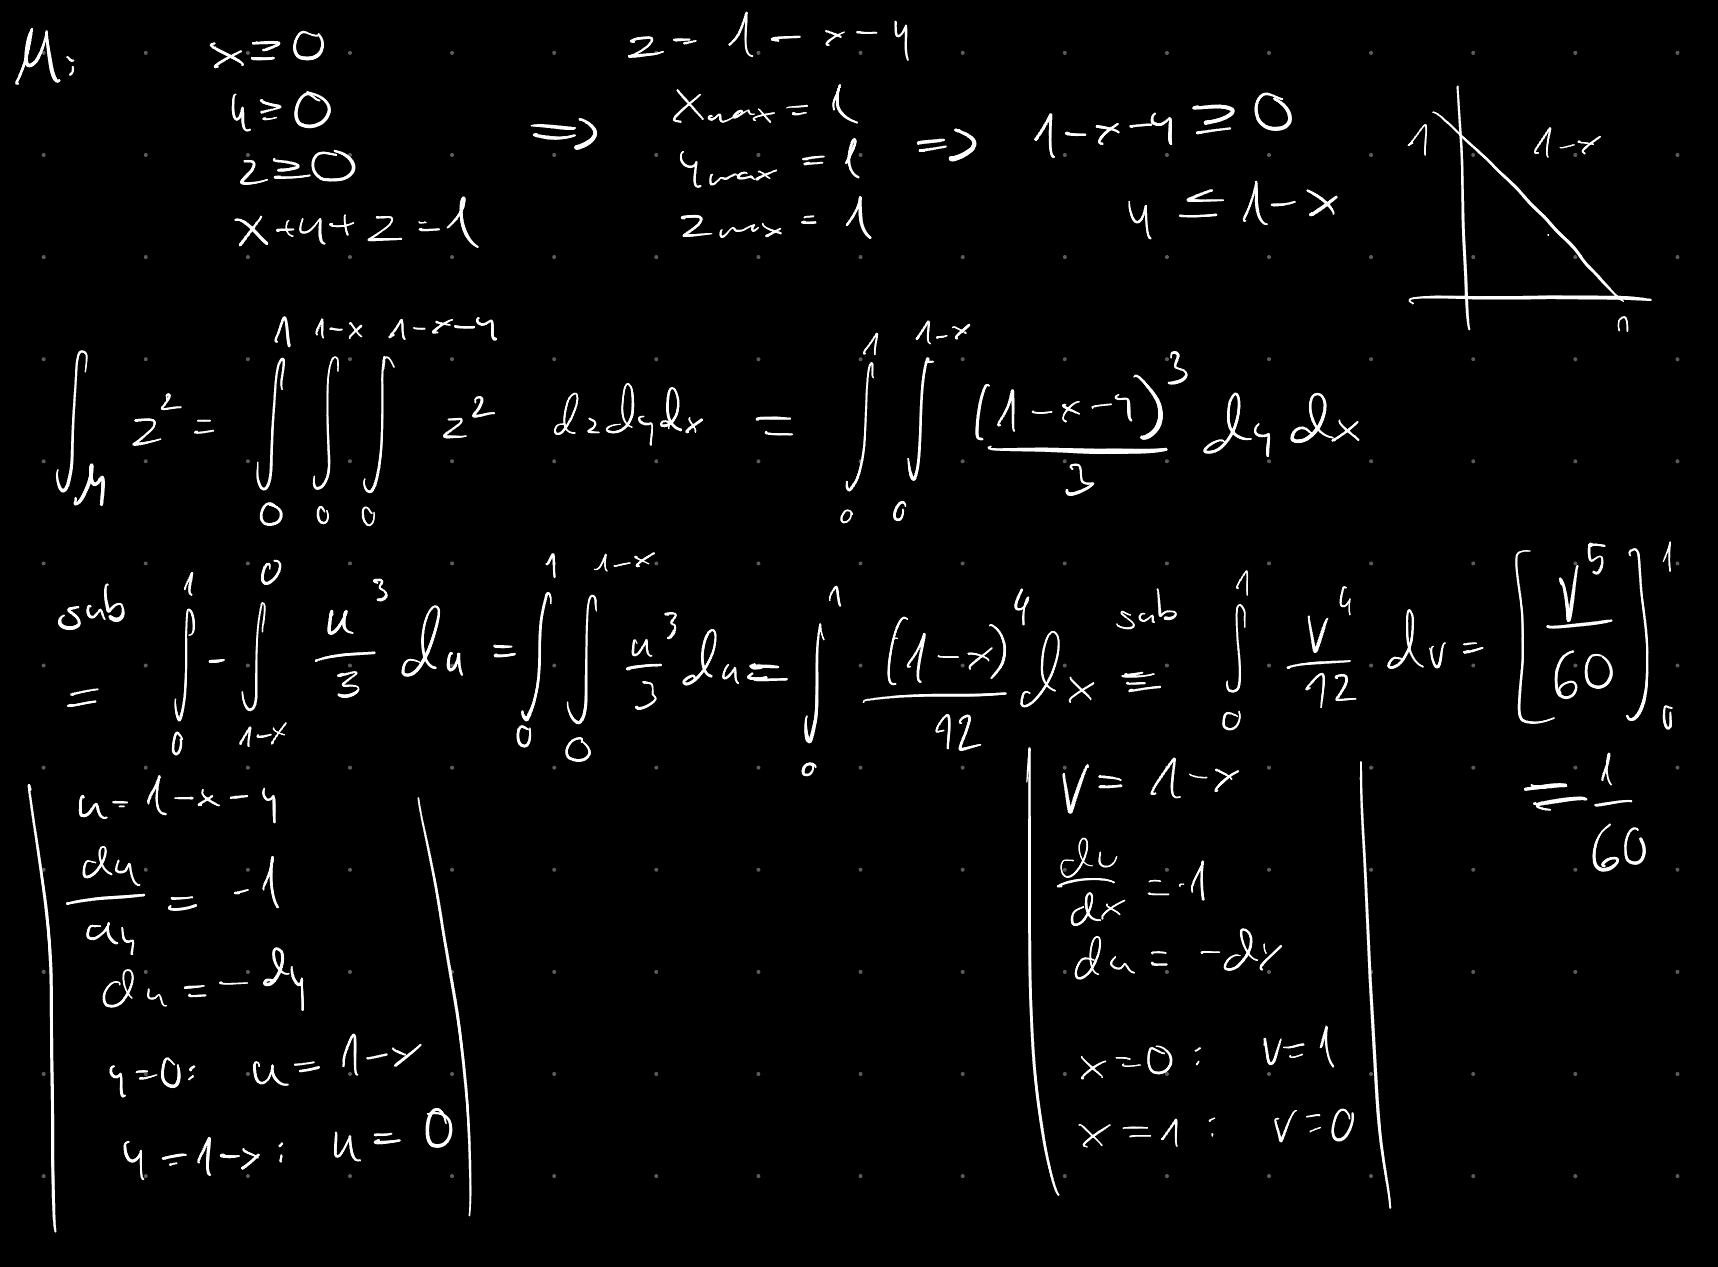 M: x≥0 z = 1-x-y
y≥0 ⇒ x_max = 1 ⇒ 1-x-y ≥ 0 1 1-x
z≥0 y_max = 1
x+y+z=1 z_max = 1 y ≤ 1-x
1
∫_M z² = ∫_0^1 ∫_0^{1-x} ∫_0^{1-x-y} z² dzdydx = ∫_0^1 ∫_0^{1-x} (1-x-y)³/3 dy dx
sub = ∫_0^1 -∫_{1-x}^0 u³/3 du = ∫_0^1 ∫_0^{1-x} u³/3 du = ∫_0^1 (1-x)⁴/12 dx sub = ∫_0^1 v⁴/12 dv = [v⁵/60]_0^1
= 1/60
u = 1-x-y
du/dy = -1
du = -dy
y=0: u = 1-x
y=1-x: u = 0
v = 1-x
dv/dx = -1
du = -dx
x=0: v=1
x=1: v=0